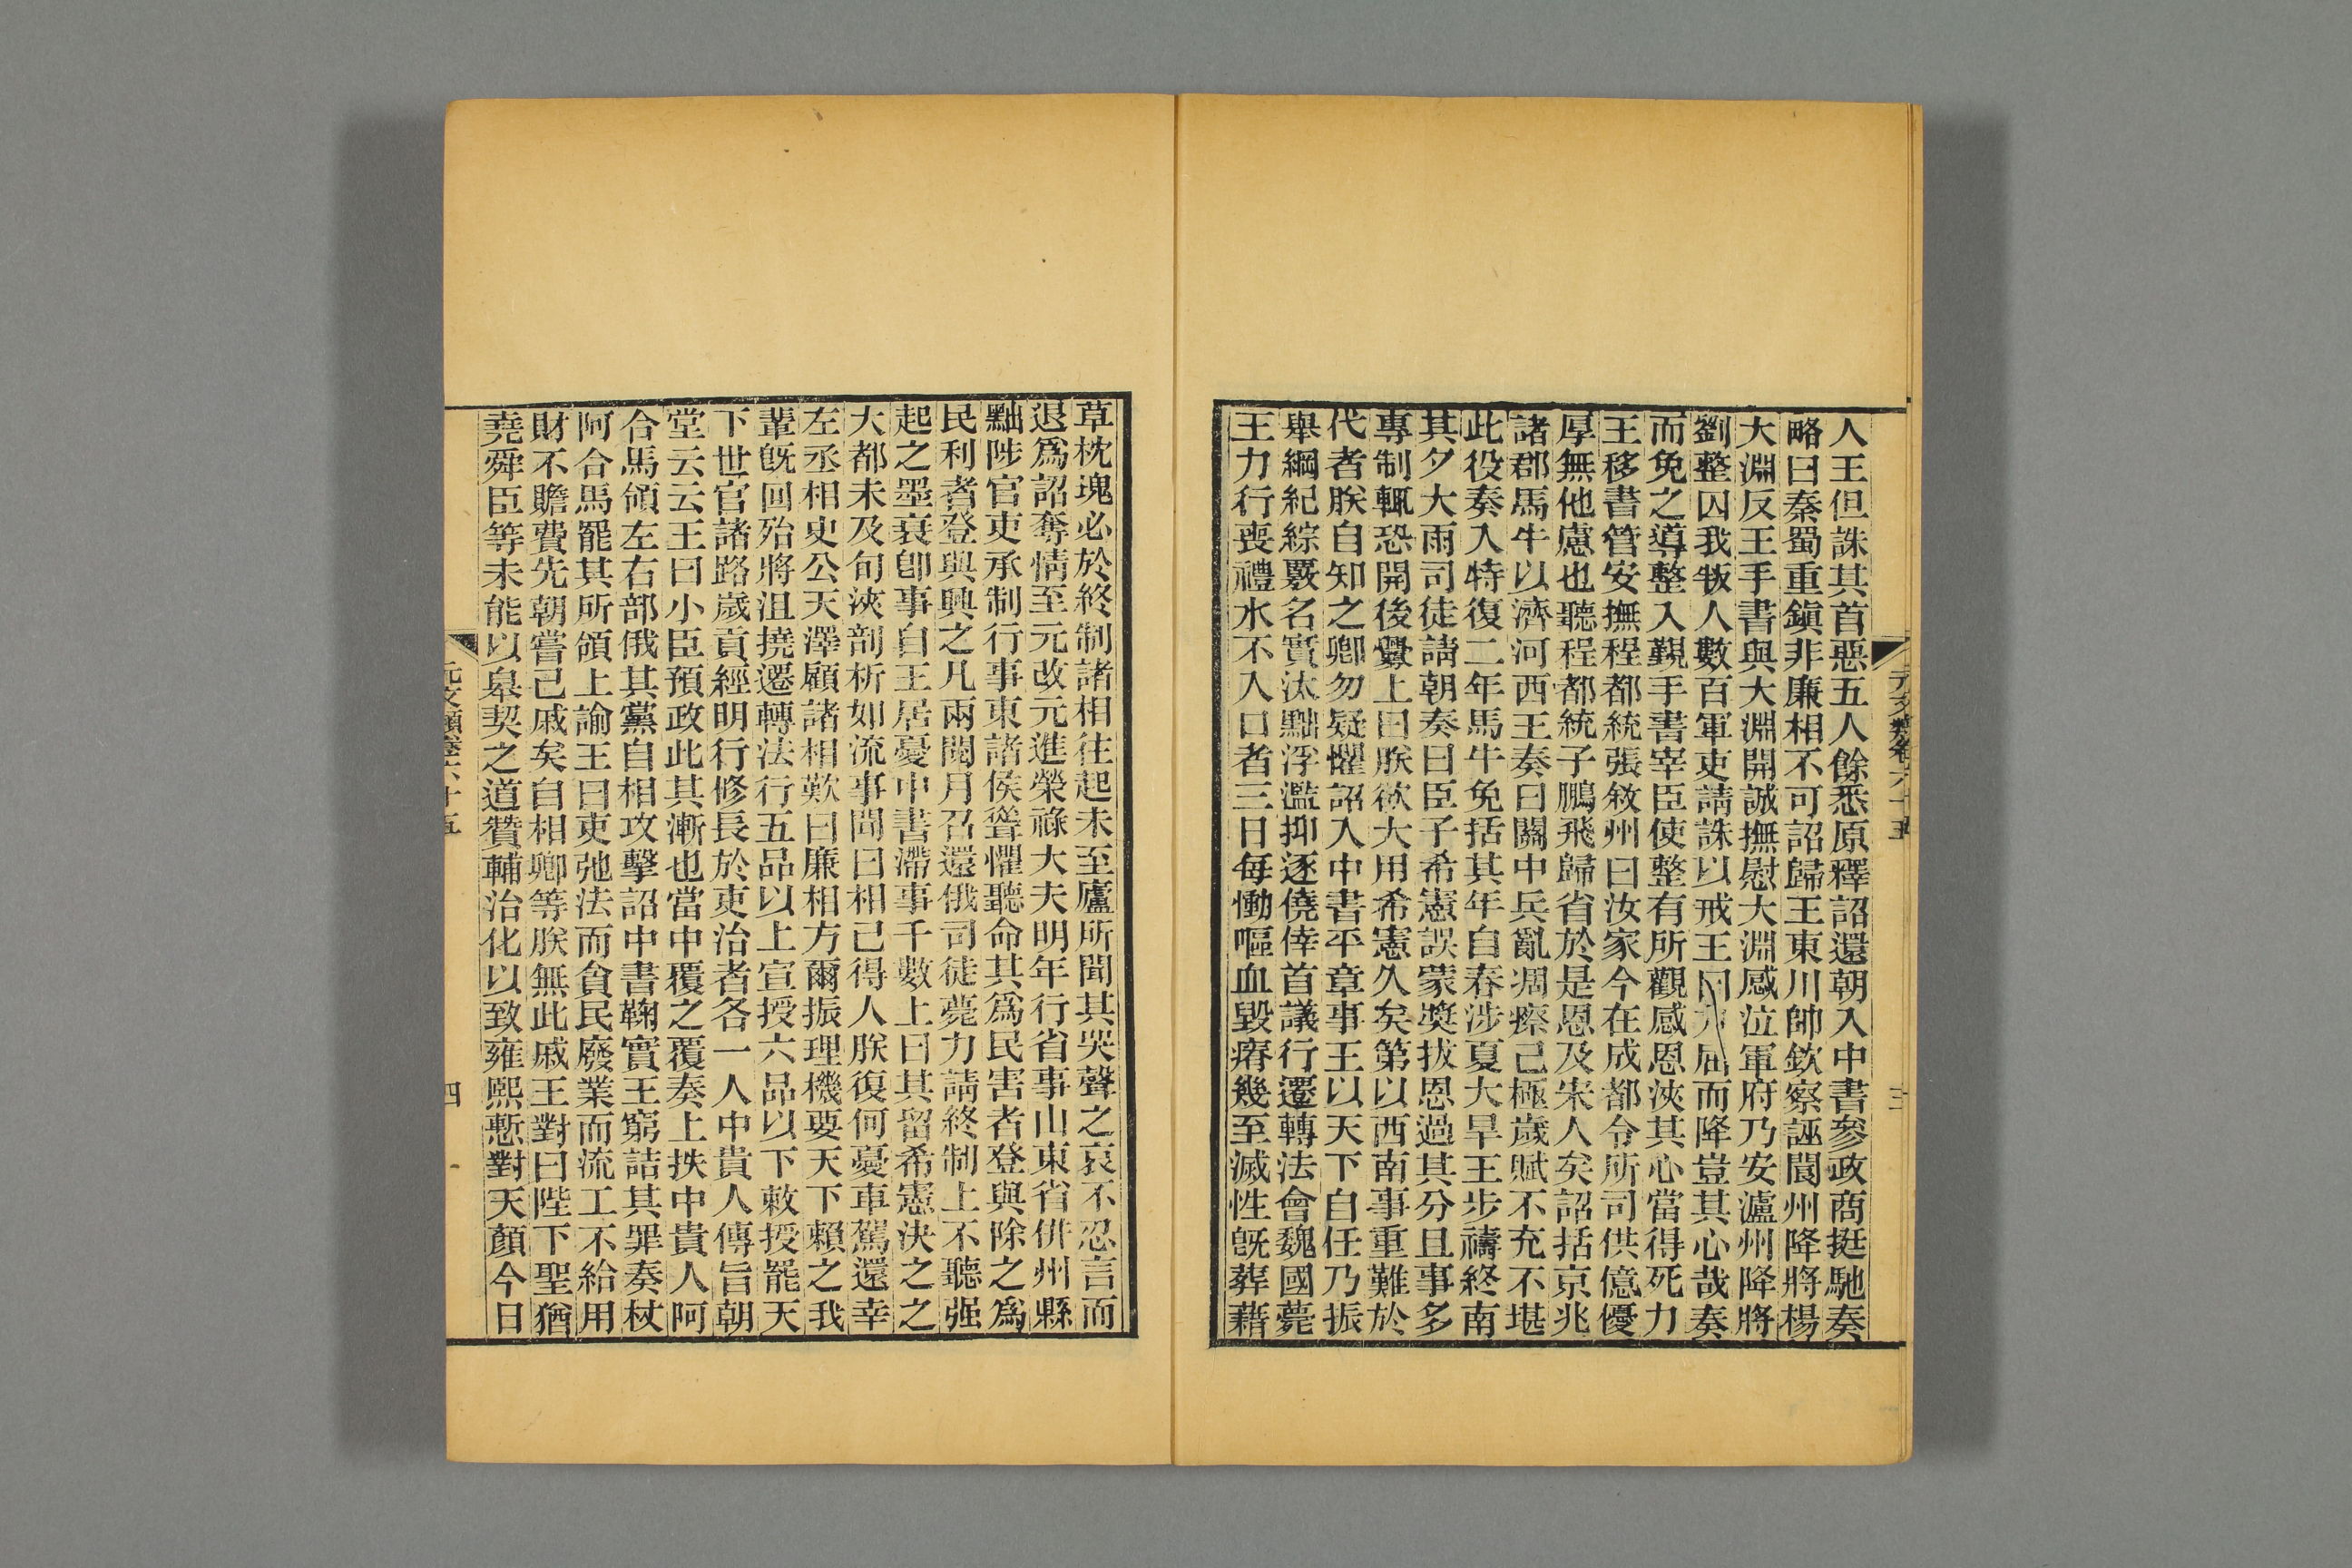 人王但誅其首惡五人餘悉原釋詔還朝入中書參政商挺馳奏
略曰秦蜀重鎭非廉相不可詔歸王東川帥欽察誣閬州降將楊
大淵反王手書與大淵開誠撫慰大淵感泣軍府乃安瀘州降將
劉整囚我叛人數百軍吏請誅以戒王曰 屈而降豈其心哉奏
而免之導整入覲手書宰臣使整有所觀感恩浹其心當得死力
王移書管安撫程都統張敘州曰汝家今在成都令所司供億優
厚無他慮也聽程都統子鵬飛歸省於是恩及宋人矣詔括京兆
諸郡馬牛以濟河西王奏曰關中兵亂凋瘵已極歲賦不充不堪
此役奏入特復二年馬牛免括其年自春涉夏大旱王步禱終南
其夕大雨司徒請朝奏曰臣子希憲誤蒙奬拔恩過其分且事多
專制輒恐開後釁上曰朕欲大用希憲久矣第以西南事重難於
代者朕自知之卿勿疑懼詔入中書平章事王以天下自任乃振
舉綱紀綜覈名實汰黜浮濫抑逐僥倖首議行遷轉法會魏國薨
王力行喪禮水不入口者三日每慟嘔血毀瘠幾至滅性旣葬藉
元文類卷六十五
三
草枕塊必於終制諸相往起未至廬所聞其哭聲之哀不忍言而
退爲詔奪情至元改元進榮祿大夫明年行省事山東省倂州縣
黜陟官吏承制行事東諸侯聳懼聽命其爲民害者登與除之爲
民利者登與興之凡兩閱月召還俄司徒薨力請終制上不聽强
起之墨衰卽事自王居憂中書滯事千數上曰其留希憲決之之
大都未及旬浹剖析如流事聞曰相己得人朕復何憂車駕還幸
左丞相史公天澤顧諸相歎曰廉相方爾振理機要天下賴之我
輩旣回殆將沮撓遷轉法行五品以上宣授六品以下敕授罷天
下世官諸路歲貢經明行修長於吏治者各一人中貴人傳旨朝
堂云云王曰小臣預政此其漸也當中覆之覆奏上抶中貴人阿
合馬領左右部俄其黨自相攻擊詔中書鞠實王窮詰其罪奏杖
阿合馬罷其所領上諭王曰吏弛法而貪民廢業而流工不給用
財不贍費先朝嘗己戚矣自相卿等朕無此戚王對曰陛下聖猶
堯舜臣等未能以皋契之道贊輔治化以致雍熙慙對天顏今日
元文類卷六十五
四